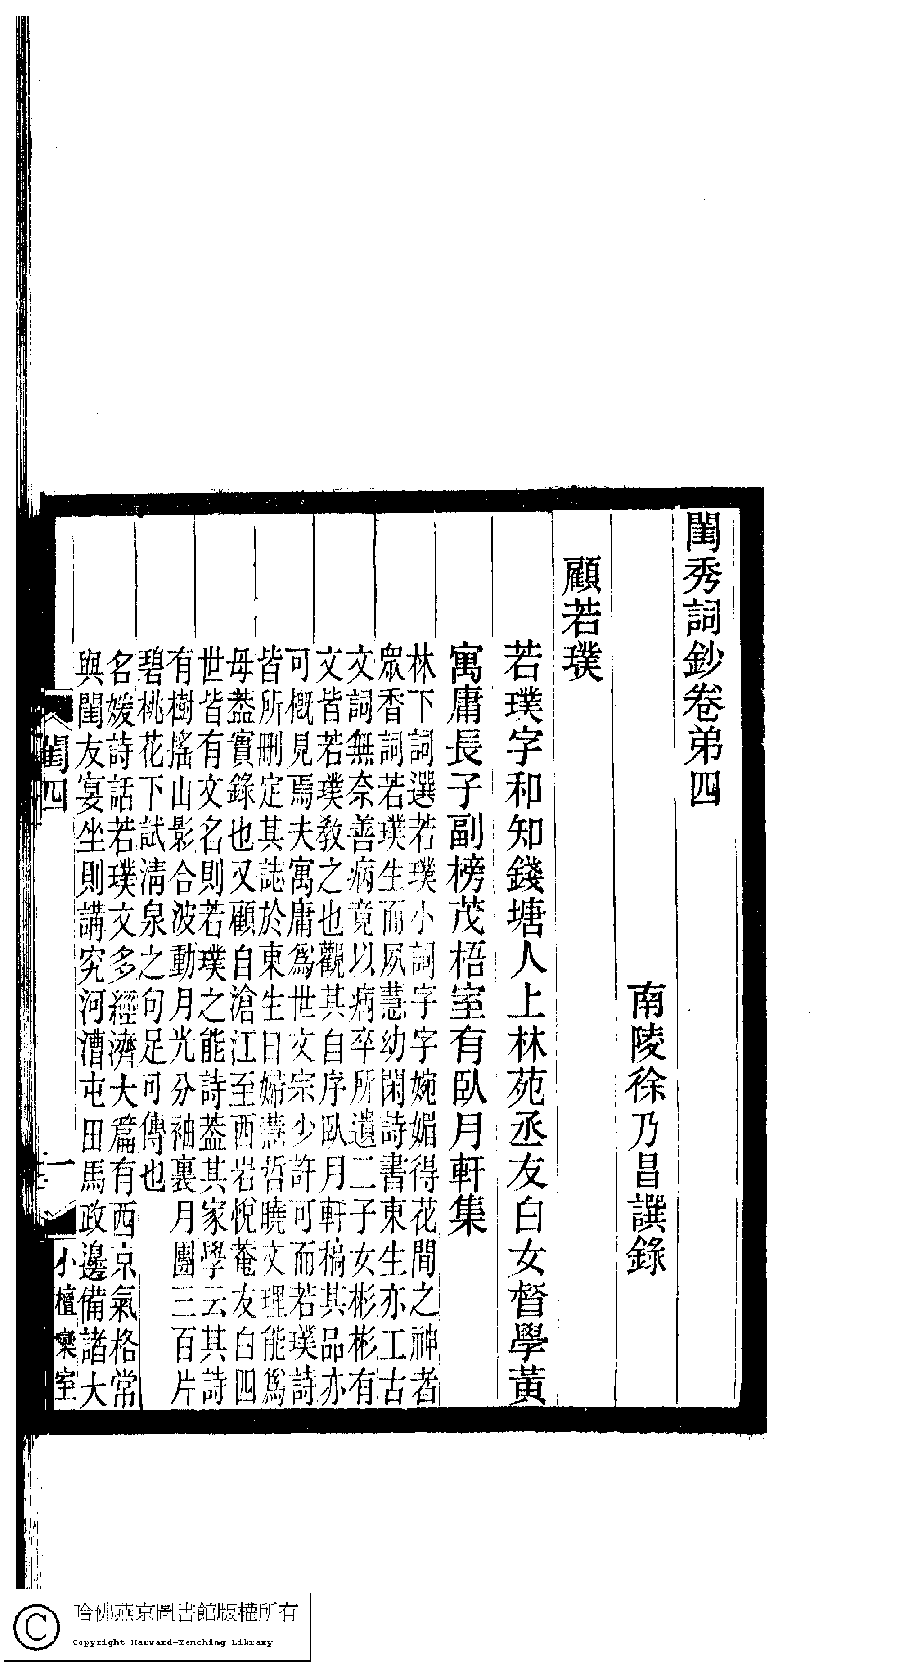 閨秀詞鈔卷弟四
南陵徐乃昌譔錄
顧若璞
若璞字和知錢塘人上林苑丞友白女督學黃
寓庸長子副榜茂梧室有臥月軒集
林下詞選若璞小詞字字婉媚得花間之神者
眾香詞若璞生而夙慧幼閑詩書東生亦工古
文詞無奈善病竟以病卒所遺二子女彬彬有
文皆若璞教之也觀其自序臥月軒稿其品亦
可概見焉夫寓庸為世文宗少許可而若璞詩
皆所刪定其誌於東生曰婦慧哲曉文理能為
母葢實錄也又顧自滄江至西岩悅菴友白四
世皆有文名則若璞之能詩葢其家學云其詩
有樹搖山影合波動月光分袖裏月團三百片
碧桃花下試清泉之句足可傳也
名媛詩話若璞文多經濟大篇有西京氣格常
與閨友宴坐則講究河漕屯田馬政邊備諸大
閨四
一
小檀欒室
哈佛燕京圖書館版權所有
Copyright Harvard-Yenching Library